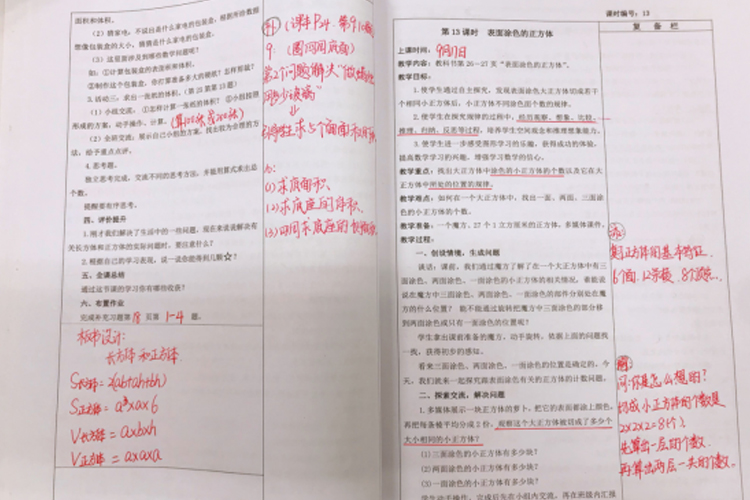 面积和体积。
(2)猜家电。不说出是什么家电的包装盒,根据所给数据
想像包装盒的大小,猜测是什么家电的包装盒。
(3)这里面涉及到哪些数学问题呢?
如:①计算包装盒的表面积和体积。
②制作这个包装盒,你打算准备多大的硬纸?怎样剪裁?
3.活动三:求出一张纸的体积。(第25页第13题)
(1)小组交流:①怎样计算一张纸的体积?②小组按照
形成的方案,动手操作、计算。
(2)全班交流:展示自己小组的方案,找出较为合理的方
法,给予重点点评。
4.思考题。
独立思考完成,交流不同的思考方法,并能用算式求出总
个数。
提醒要有序思考。
四、评价提升
1.刚才我们解决了生活中的一些问题,现在来说说解决有
关长方体和正方体的实际问题时,要注意什么?
2.根据自己的学习表现,说一说你能得到几颗☆?
五、全课总结
通过这节课的学习你有哪些收获?
六、布置作业
完成补充习题第18页第1-4题。
板书设计:
长方体和正方体
S长方体=2(ab+ah+bh)
S正方体=a×a×6
V长方体=a×b×h
V正方体=a×a×a
(1)求底面积、
课时编号:13
第13课时 表面涂色的正方体
复备栏
上课时间:9月17日
教学内容:教科书第26~27页“表面涂色的正方体”。
教学目标:
1.使学生通过自主探究,发现表面涂色大正方体切成若干
个相同小正方体后,小正方体不同涂色面个数的规律。
2.使学生在探究规律的过程中,经历观察、想象、比较、
推理、归纳、反思等过程,培养学生空间观念和推理想象能力。
3.使学生进一步感受图形学习的乐趣,获得成功的体验,
提高数学学习的兴趣,增强学习数学的信心。
教学重点:找出大正方体中涂色的小正方体的个数以及它在大
正方体中所处的位置的规律。
教学难点:如何在一个大正方体中,找出一面、两面、三面涂色
的小正方体的个数。
教学准备:一个魔方,27个1立方厘米的正方体,多媒体课件。
教学过程:
一、创设情境,生成问题
谈话:课前,我们通过魔方了解了在一个大正方体中有三
面涂色、两面涂色、一面涂色的小正方体的相关情况,谁能说
说在魔方中三面涂色、两面涂色、一面涂色的部分分别处在魔
方的什么位置?能不能通过旋转把魔方中三面涂色的部分移
到两面涂色或只有一面涂色的位置呢?
学生拿出课前准备的魔方,动手旋转,依据上面的问题找
一找,获得初步的感知。
看来三面涂色、两面涂色、一面涂色的位置是确定的,今
天,我们就来一起探究跟表面涂色有关的正方体的计数问题。
二、探索交流,解决问题
1.多媒体展示一块正方体的萝卜,把它的表面都涂上颜色,
再把每条棱平均分成2份,观察这个大正方体被切成了多少个
大小相同的小正方体?
(1)三面涂色的小正方体有多少块?
(2)两面涂色的小正方体有多少块?
(3)一面涂色的小正方体有多少块?
复正方体的基本特征
6个面、12条棱、8个顶点
问:你是怎么想的?
切成小正方体的个数是
2×2×2=8(个)
先算出一层的个数
再算出两层一共的个数.